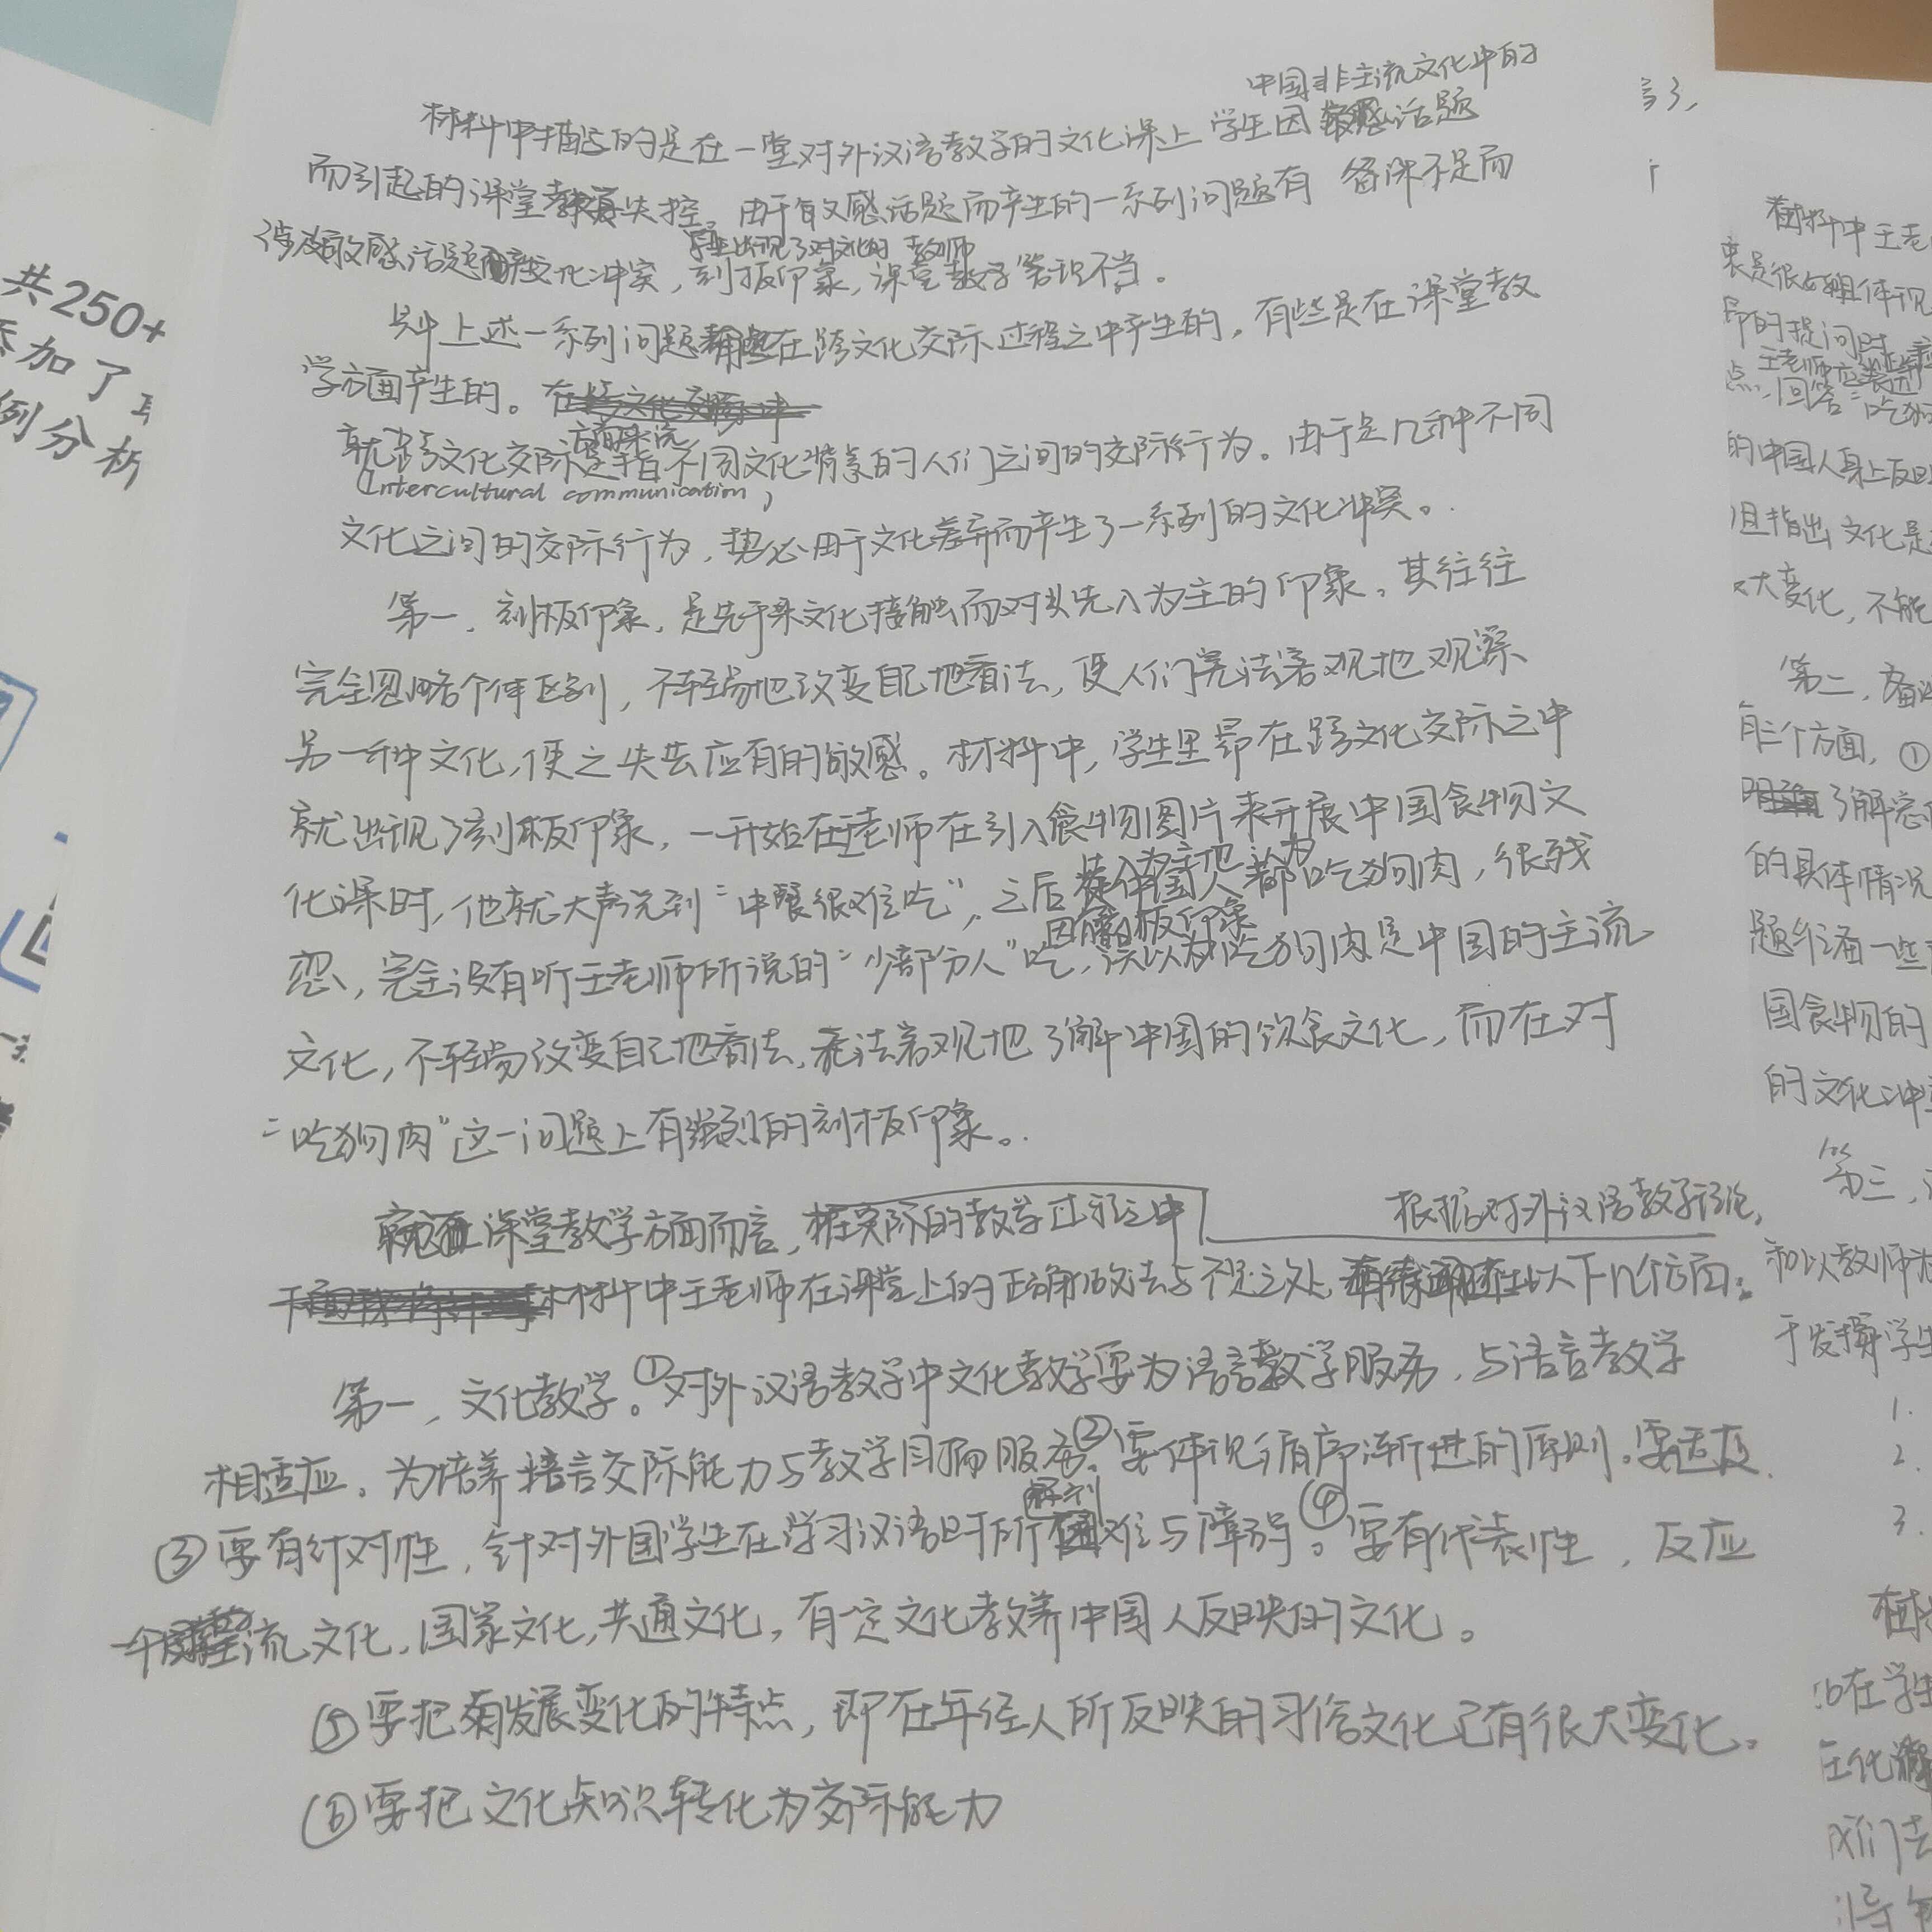 中国非主流文化中的
材料中描写的是在一堂对外汉语教学的文化课上 学生因敏感话题
而引起的课堂教失控。由于敏感话题而产生的一系列问题有 备课不足而
学生出现了对文化的 教师
涉及敏感话题文化冲突，刻板印象，课堂教学意识不当。
上述一系列问题在跨文化交际过程之中产生的，有些是在课堂教
学方面产生的。在跨文化交际中
方面来说
就跨文化交际是指不同文化背景的人们之间的交际行为。由于是几种不同
(Intercultural communication)
文化之间的交际行为，势必由于文化差异而产生了一系列的文化冲突。
第一，刻板印象，是先于某文化接触而对其先入为主的印象。其往往
完全忽略个体区别，不轻易地改变自己地看法，使人们无法客观地观察
另一种文化，使之失去应有的敏感。材料中，学生里昂在跨文化交际之中
就出现了刻板印象，一开始在王老师在引入食物图片来开展中国食物文
先入为主地认为
化课时，他就大声说到“中餐很难吃”，之后中国人都吃狗肉，很残
因刻板印象
忍，完全没有听王老师所说的“少部分人”吃，误以为吃狗肉是中国的主流
文化，不轻易改变自己地看法，无法客观地了解中国的饮食文化，而在对
“吃狗肉”这一问题上有强烈的刻板印象。
就课堂教学方面而言，在实际的教学过程之中 根据对外汉语教学理论，
材料中王老师在课堂上的正确做法与不足之处，以下几个方面：
第一，文化教学。①对外汉语教学中文化教学要为语言教学服务，与语言教学
相适应。为培养语言交际能力与教学目标服务。②要体现循序渐进的原则。要适度
解释
③要有针对性，针对外国学生在学习汉语时所困难与障碍。④要有代表性，反应
主流文化，国家文化，共通文化，有一定文化教养中国人反映的文化。
⑤要把有发展变化的特点，即在年轻人所反映的习俗文化已有很大变化。
⑥要把文化知识转化为交际能力
共250+
添加了
例分析
材料中王老
的提问时
点，回答“吃狗
的中国人身上反映
且指出文化是
大变化，不能
第二，备课
有三个方面，①
了解
的具体情况
题
国食物的
的文化冲突
第三，
和以教师
于发挥学生
1.
2.
3.
在学生